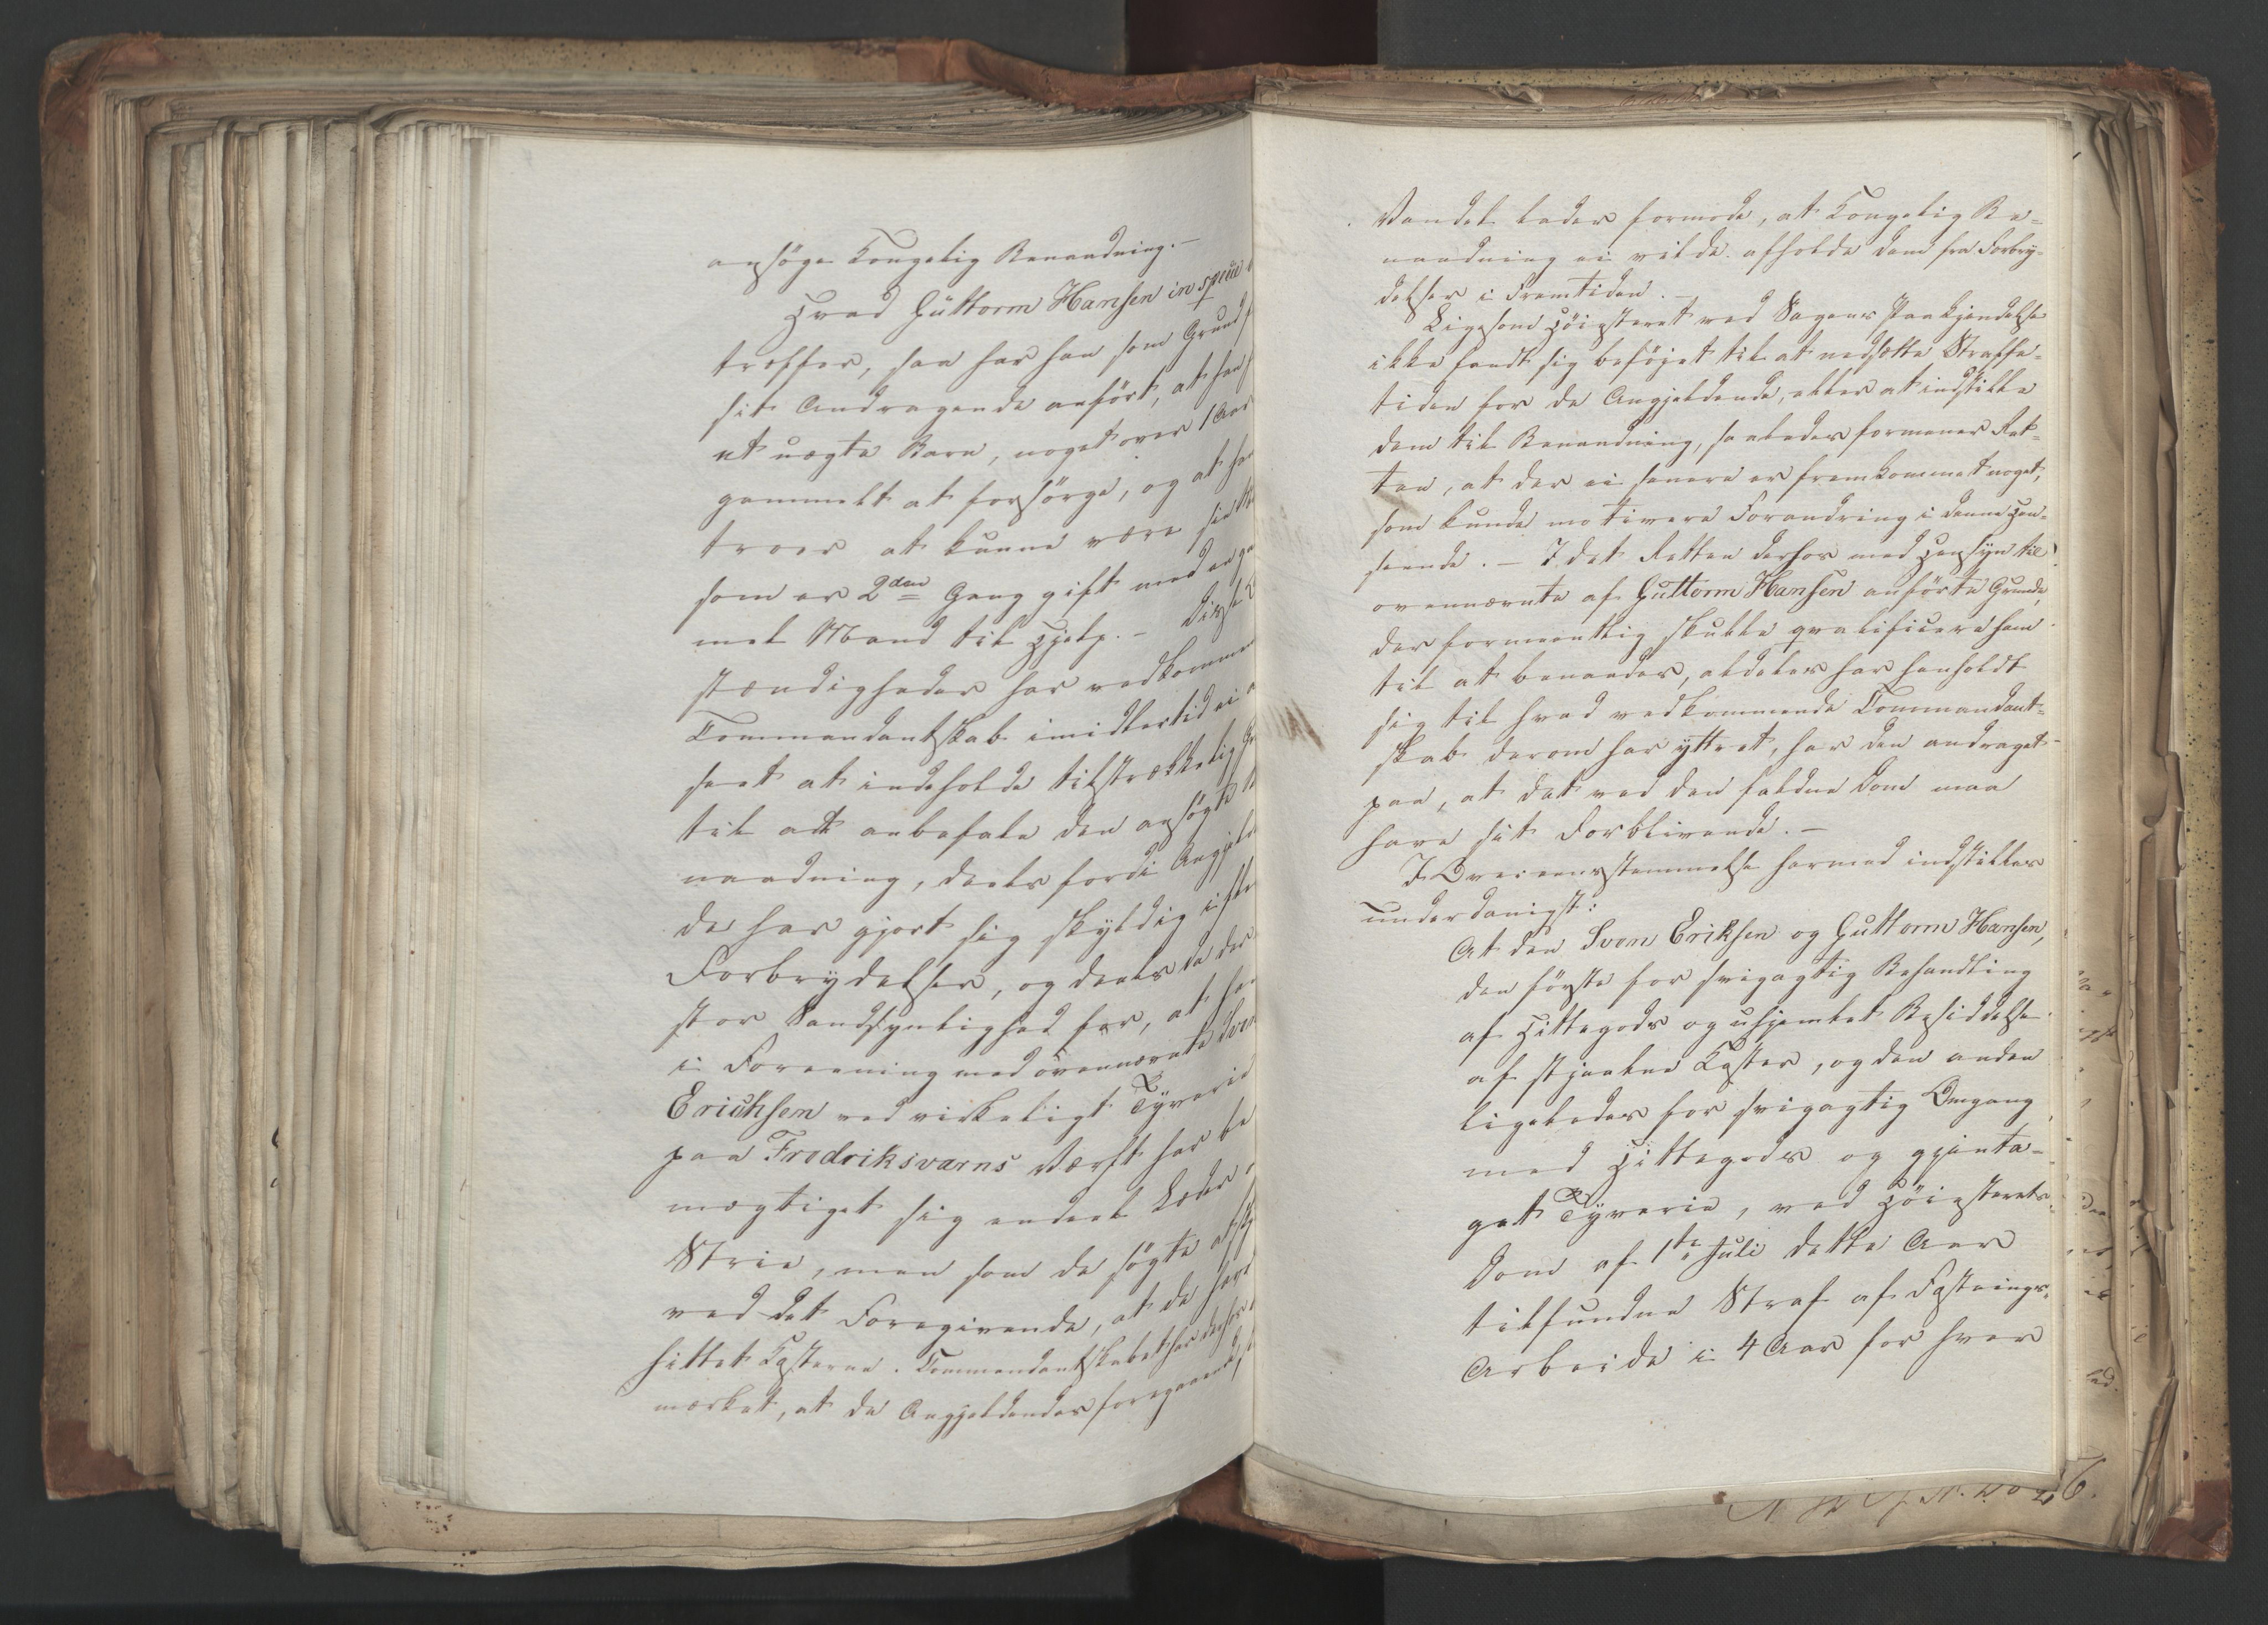 ansöge Kongelig Benaadning.—
Hvad Guttorm Hansen in specie
træffer, saa har han som Grund
sit Andragende anført, at han
et uægte Barn, noget over 1 Aar
gammelt at forsörge, og at han
troer at kunne være sin
som er 2den Gang gift med en ga
mel Mand til Hjelp. — Disse
stændigheder har vedkommen
Commandantskab imidlertid ei
seet at indeholde tilstrækkelig
til at anbefale den ansögte
naadning, deels fordi Angjeld
de har gjort sig skyldig i flere
Forbrydelser, og deels da der
stor Sandsynlighed for, at han
i Forening med ovennævnte Sven
Erichsen ved virkeligt Tyverie
paa Fredriksværns Værft har be
mægtiget sig endeel Læder
Strie, men som de søgte
ved det Foregivende, at de have
hittet Kosterne. Commandantskabet har derhos
mærket, at de Angjeldendes foregaaende
Vandel lader formode, at Kongelig Be=
naadning ei vilde afholde dem fra Forbry=
delser i Fremtiden.—
Ligesom Höiesteret ved Sagens Paakjendelse
ikke fandt sig beföjet til at nedsætte Straffe=
tiden for de Angjeldende, eller at indstille
dem til Benaadning, saaledes formener Ret=
ten, at der ei senere er fremkommet noget,
som kunde motivere Forandring i denne Hen=
seende. — I det Retten derhos med Hensyn til
ovennævnte af Guttorm Hansen anförte Grunde,
der formeentlig skulle qvalificere ham
til at benaades, aldeles har henholdt
sig til hvad vedkommende Commandant=
skab derom har yttret, har den andraget
paa, at det ved den faldne Dom maa
have sit Forblivende.—
I Overeensstemmelse hermed indstilles
underdanigst:
At den Svem Eriksen og Guttorm Hansen,
den förste for svigagtig Behandling
af Hittegods og uhjemlet Besiddelse
af stjaalne Koster, og den anden
ligeledes for svigagtig Omgang
med Hittegods og gjenta=
get Tyverie, ved Höiesterets
Dom af 1te Juli dette Aar
tilfundne Straf af Fæstnings=
Arbeide i 4 Aar for hver